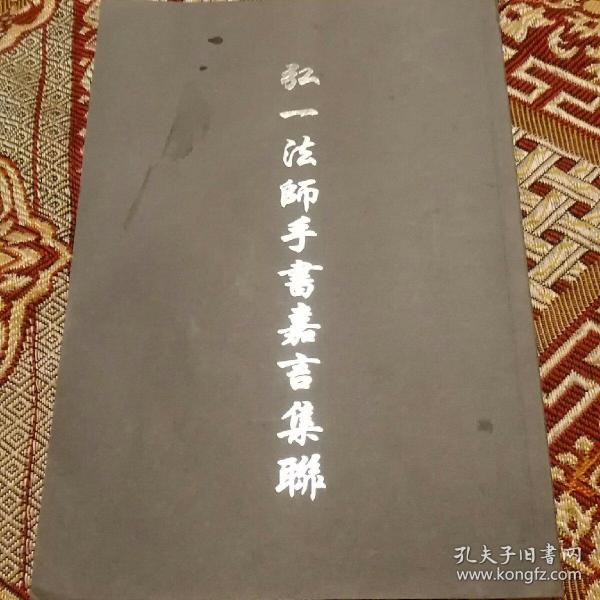 弘一法師手書嘉言集聯
孔夫子旧書网
www.kongfz.com